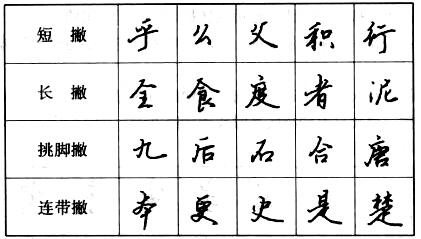 短 撇 乎 公 父 积 行
长 撇 全 食 度 者 泥
挑脚撇 九 后 石 合 唐
连带撇 本 更 史 是 楚